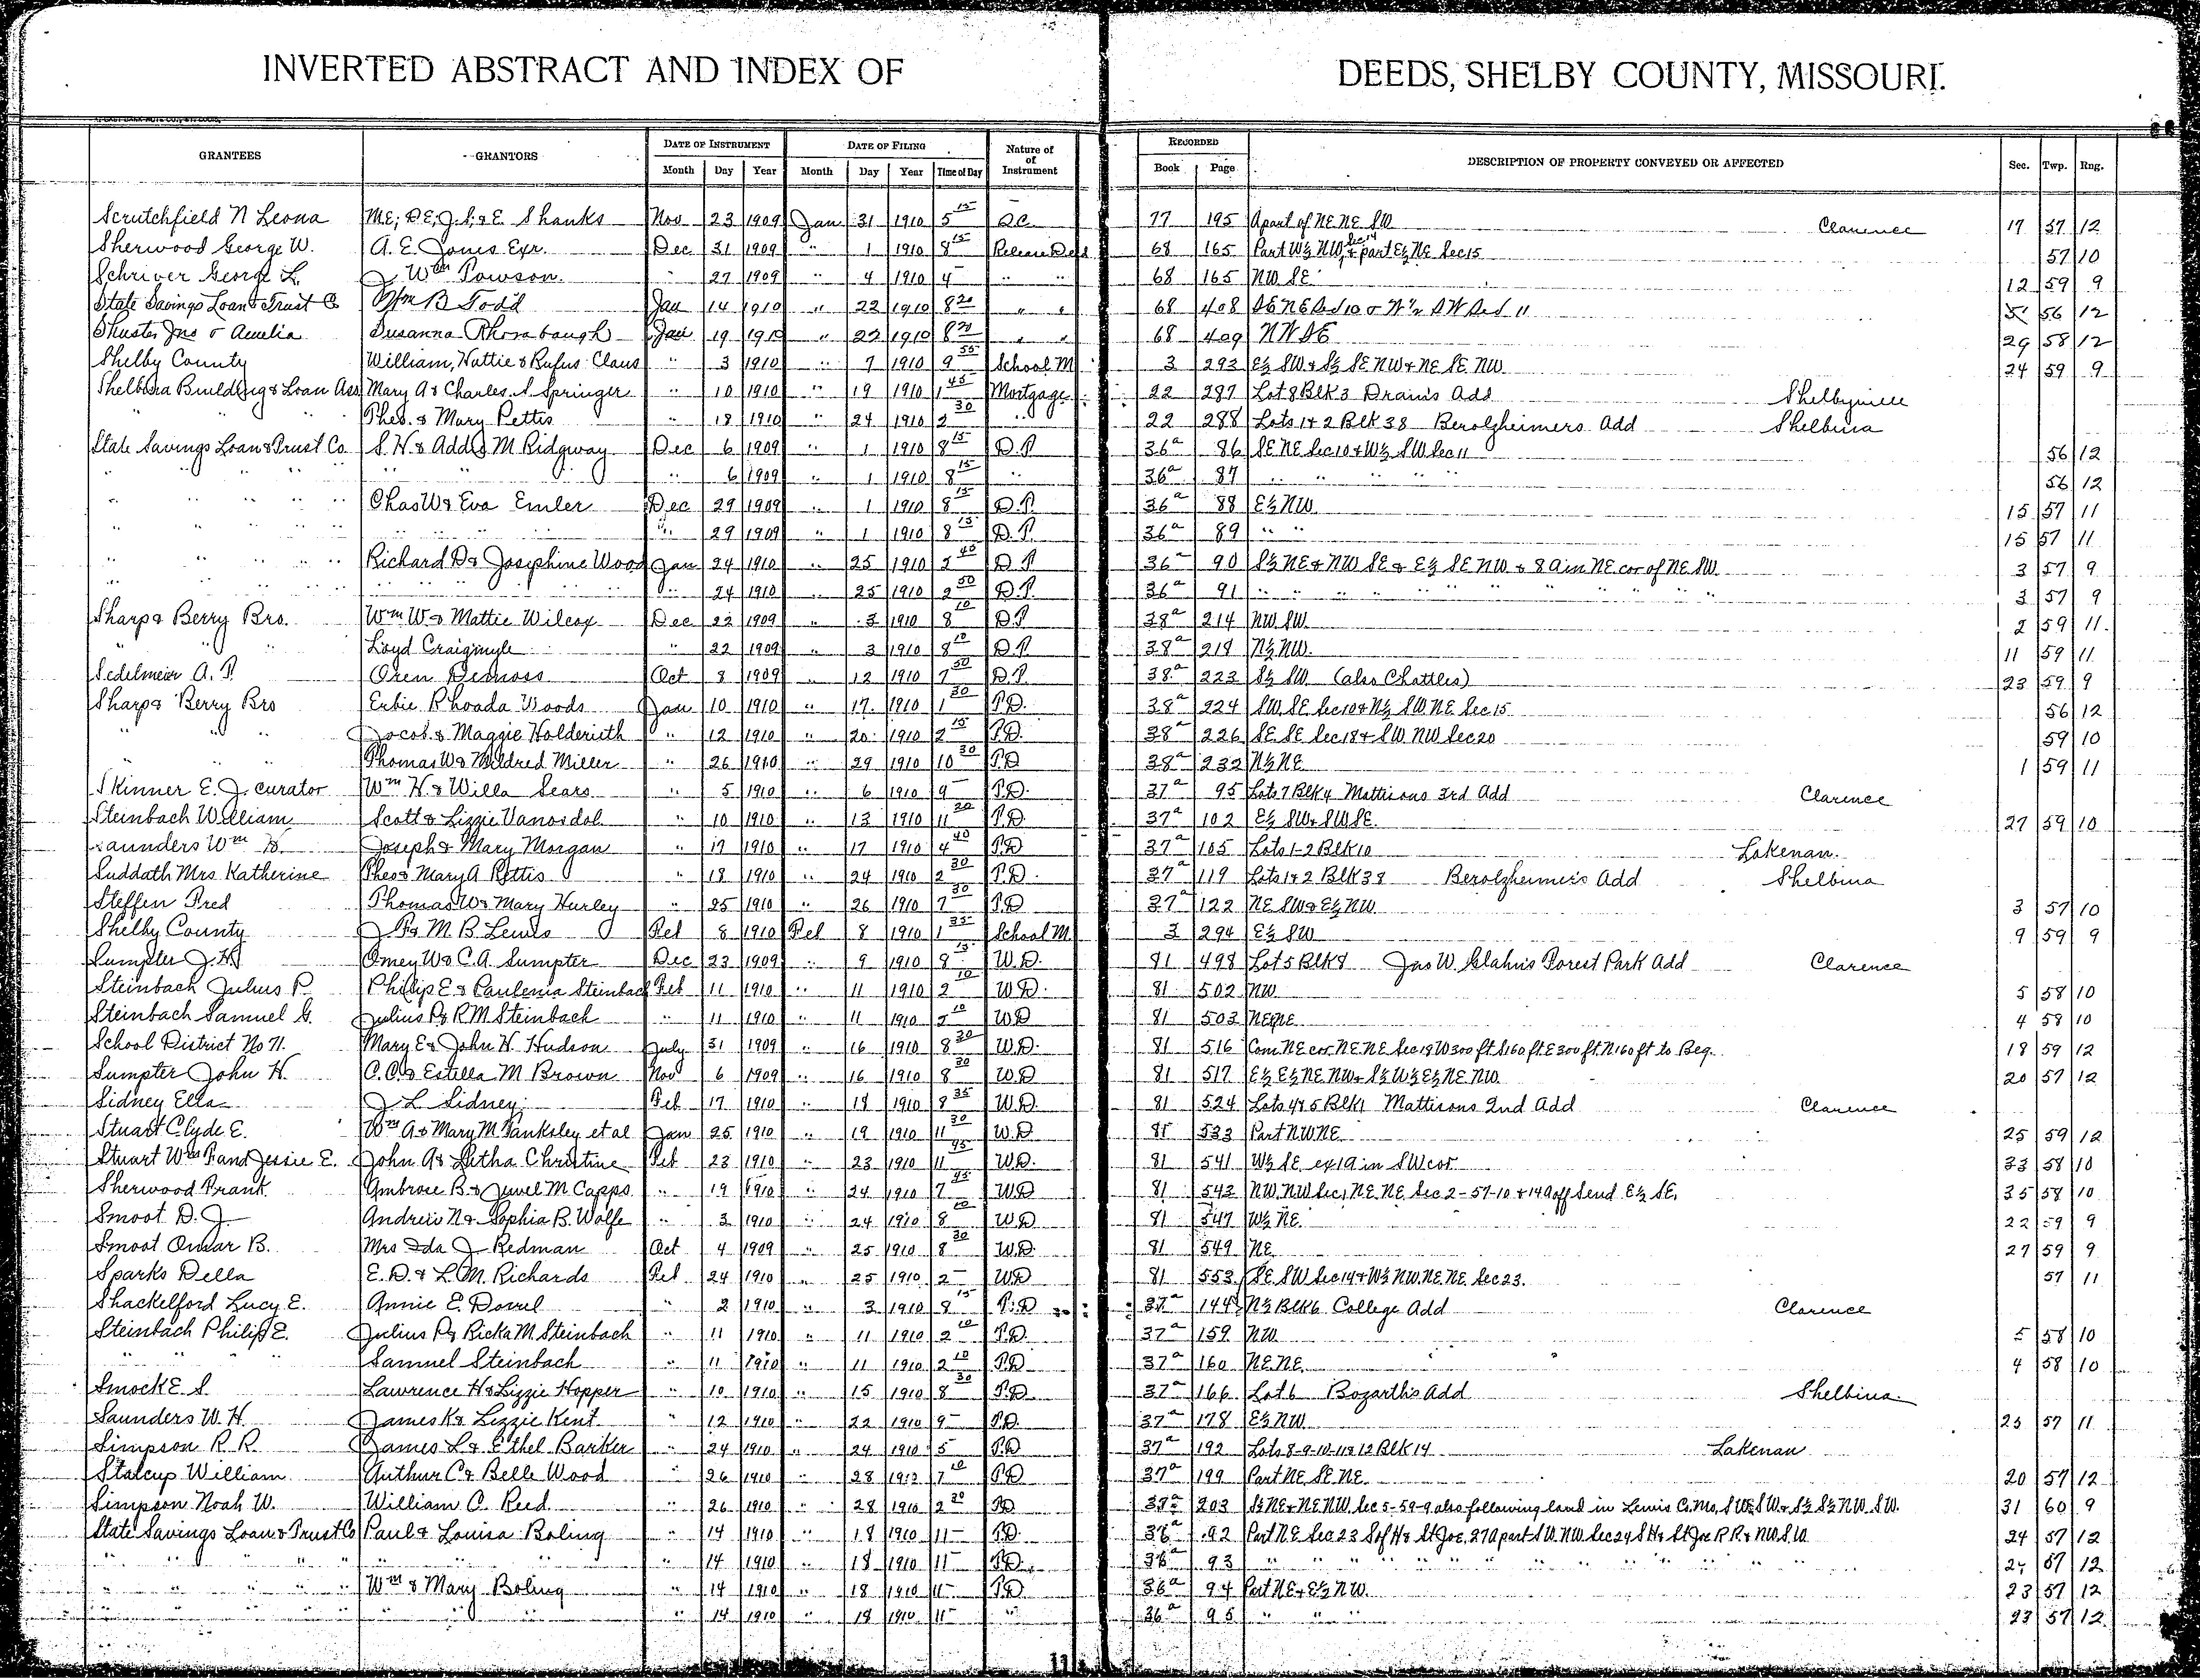 INVERTED ABSTRACT AND INDEX OF DEEDS, SHELBY COUNTY, MISSOURI.
GRANTEES GRANTORS DATE OF INSTRUMENT DATE OF FILING Nature of of Instrument RECORDED DESCRIPTION OF PROPERTY CONVEYED OR AFFECTED Sec. Twp. Rng.
Month Day Year Month Day Year Time of Day Book Page
Scrutchfield N Leona M.E; D.E; J.S; & E. Shanks Nov 23 1909 Jan 31 1910 5 15 Q.C. 77 195 A part of NE NE SW Clarence 17 57 12
Sherwood George W. A. E. Jones Exr. Dec 31 1909 " 1 1910 8 15 Release Deed 68 165 Part W½ NW Sec 14 & part E½ NE Sec 15 57 10
Schriver George L. J Wm Towson " 27 1909 " 4 1910 4 " " 68 165 NW SE 12 59 9
State Savings Loan & Trust Co Wm B Todd Jan 14 1910 " 22 1910 8 20 " " 68 408 SE NE Sec 10 & W½ SW Sec 11 56 12
Shuster Jno & Amelia Susanna Rhorabaugh Jan 19 1910 " 22 1910 8 20 " " 68 409 NW SE 29 58 12
Shelby County William, Hattie & Rufus Claus " 3 1910 " 7 1910 9 55 School M 3 293 E½ SW & S½ SE NW & NE SE NW 24 59 9
Shelbina Building & Loan Ass Mary A & Charles S Springer " 10 1910 " 19 1910 1 45 Mortgage 22 287 Lot 8 Blk 3 Drain's Add Shelbyville
" " Theo. & Mary Pettis " 18 1910 " 24 1910 2 30 " 22 288 Lots 1 & 2 Blk 38 Berolzheimers Add Shelbina
State Savings Loan & Trust Co. S. H. & Addie M Ridgway Dec 6 1909 " 1 1910 8 15 D.T. 36a 86 SE NE Sec 10 & W½ SW Sec 11 56 12
" " " " " " 6 1909 " 1 1910 8 15 " 36a 87 " " " 56 12
" " " " Chas W & Eva Emler Dec 29 1909 " 1 1910 8 15 D.T. 36a 88 E½ NW 15 57 11
" " " " " " 29 1909 " 1 1910 8 15 D.T. 36a 89 " " 15 57 11
" " " " Richard D & Josephine Wood Jan 24 1910 " 25 1910 2 40 D.T. 36a 90 S½ NE & NW SE & E½ SE NW & 8 A in NE cor of NE SW 3 57 9
" " " " " " 24 1910 " 25 1910 2 50 D.T. 36a 91 " " " " " " 3 57 9
Sharp & Berry Bro. Wm W & Mattie Wilcox Dec 22 1909 " 3 1910 8 10 D.T. 38a 214 NW SW 2 59 11
" " Loyd Craigmyle " 22 1909 " 3 1910 8 10 D.T. 38a 218 N½ NW 11 59 11
Sedelmeier A. P. Oren Demoss Oct 8 1909 " 12 1910 7 50 D.T. 38a 223 S½ SW (also Chattles) 23 59 9
Sharp & Berry Bro Erbie Rhoada Woods Jan 10 1910 " 17 1910 1 30 T.D. 38a 224 SW SE Sec 10 & N½ SW NE Sec 15 56 12
" " " Jacob & Maggie Holderieth " 12 1910 " 20 1910 2 15 T.D. 38a 226 SE SE Sec 18 & SW NW Sec 20 59 10
" " Thomas W & Mildred Miller " 26 1910 " 29 1910 10 30 T.D. 38a 232 N½ NE 1 59 11
Skinner E. J. curator Wm H. & Willa Sears " 5 1910 " 6 1910 9 T.D. 37a 95 Lots 7 Blk 4 Mattisons 3rd Add Clarence
Steinbach William Scott & Lizzie Vanosdol " 10 1910 " 13 1910 11 20 T.D. 37a 102 E½ SW & SW SE 27 59 10
Saunders Wm H. Joseph & Mary Morgan " 17 1910 " 17 1910 4 40 T.D. 37a 105 Lots 1-2 Blk 10 Lakenan.
Suddath Mrs Katherine Theo & Mary A Pettis " 18 1910 " 24 1910 2 30 T.D. 37a 119 Lots 1 & 2 Blk 38 Berolzheimers Add Shelbina
Steffen Fred Thomas W & Mary Hurley " 25 1910 " 26 1910 7 30 T.D. 37a 122 NE SW & E½ NW 3 57 10
Shelby County J. P. & M. B. Lewis Feb 8 1910 Feb 8 1910 1 35 School M 3 294 E½ SW 9 59 9
Sumpter J. H. Omey W & C. A. Sumpter Dec 23 1909 " 9 1910 8 15 W.D. 81 498 Lot 5 Blk 8 Jno W. Glahn's Forest Park Add Clarence
Steinbach Julius P. Philip E & Paulenia Steinbach Feb 11 1910 " 11 1910 2 10 W.D. 81 502 NW 5 58 10
Steinbach Samuel G. Julius P & R M Steinbach " 11 1910 " 11 1910 2 10 W.D. 81 503 NE NE 4 58 10
School District No 71. Mary E & John H. Hudson July 31 1909 " 16 1910 8 30 W.D. 81 516 Com. NE cor. NE NE Sec 18 W 300 ft. S 160 ft. E 300 ft. N 160 ft to Beg. 18 59 12
Sumpter John H. C. C. & Estella M Brown Nov 6 1909 " 16 1910 8 30 W.D. 81 517 E½ E½ NE NW & S½ W½ E½ NE NW 20 57 12
Sidney Ella J L Sidney Feb 17 1910 " 18 1910 8 35 W.D. 81 524 Lots 4 & 5 Blk 1 Mattisons 2nd Add Clarence
Stuart Clyde E. Wm A & Mary M. Tanksley et al Jan 25 1910 " 19 1910 11 30 W.D 81 533 Part NW NE 25 59 12
Stuart Wm F and Jessie E. John A & Letha Christine Feb 23 1910 " 23 1910 11 45 W.D. 81 541 W½ SE ex 1 A in SW cor 33 58 10
Sherwood Frank Ambrose B. & Jewel M Capps " 19 1910 " 24 1910 7 45 W.D 81 543 NW NW Sec 1, NE NE Sec 2-57-10 & 14 A off S end E½ SE 35 58 10
Smoot D. J. Andrew N & Sophia B. Wolfe " 3 1910 " 24 1910 8 10 W.D 81 547 W½ NE 22 59 9
Smoot Omar B. Mrs Ida J Redman Oct 4 1909 " 25 1910 8 30 W.D. 81 549 NE 27 59 9
Sparks Della E. D. & L. M. Richards Feb 24 1910 " 25 1910 2 W.D 81 553 SE SW Sec 14 & W½ NW NE NE Sec 23. 57 11
Shackelford Lucy E. Annie E. Dorrel " 2 1910 " 3 1910 8 15 T.D 37a 144 N½ Blk 6 College Add Clarence
Steinbach Philip E. Julius P & Ricka M Steinbach " 11 1910 " 11 1910 2 10 T.D. 37a 159 NW 5 58 10
" " " Samuel Steinbach " 11 1910 " 11 1910 2 10 T.D 37a 160 NE NE 4 58 10
Smock E. S. Lawrence H & Lizzie Hopper " 10 1910 " 15 1910 8 30 T.D 37a 166 Lot 6 Bozarth's Add Shelbina
Saunders W. H. James K & Lizzie Kent " 12 1910 " 22 1910 9 T.D. 37a 178 E½ NW 25 57 11
Simpson R. R. James L & Ethel Barker " 24 1910 " 24 1910 5 T.D 37a 192 Lots 8-9-10-11 & 12 Blk 14 Lakenan
Stalcup William Arthur C & Belle Wood " 26 1910 " 28 1910 7 10 T.D 37a 199 Part NE SE NE 20 57 12
Simpson Noah W. William C. Reed " 26 1910 " 28 1910 2 30 T.D 37a 203 S½ NE & NE NW Sec 5-59-9 also following land in Lewis Co. Mo. SW SW & S½ S½ NW SW. 31 60 9
State Savings Loan & Trust Co Paul & Louisa Boling " 14 1910 " 18 1910 11 T.D. 36a 92 Part NE Sec 23 S of H & St Joe, 27 A part SW NW Sec 24 S H & St Joe R R & NW SW 24 57 12
" " " " " " " 14 1910 " 18 1910 11 T.D. 36a 93 " " " " " " 57 12
" " " " Wm & Mary Boling " 14 1910 " 18 1910 11 T.D 36a 94 Part NE & E½ NW 23 57 12
" " " " " " " 14 1910 " 18 1910 11 " 36a 95 " " " 23 57 12